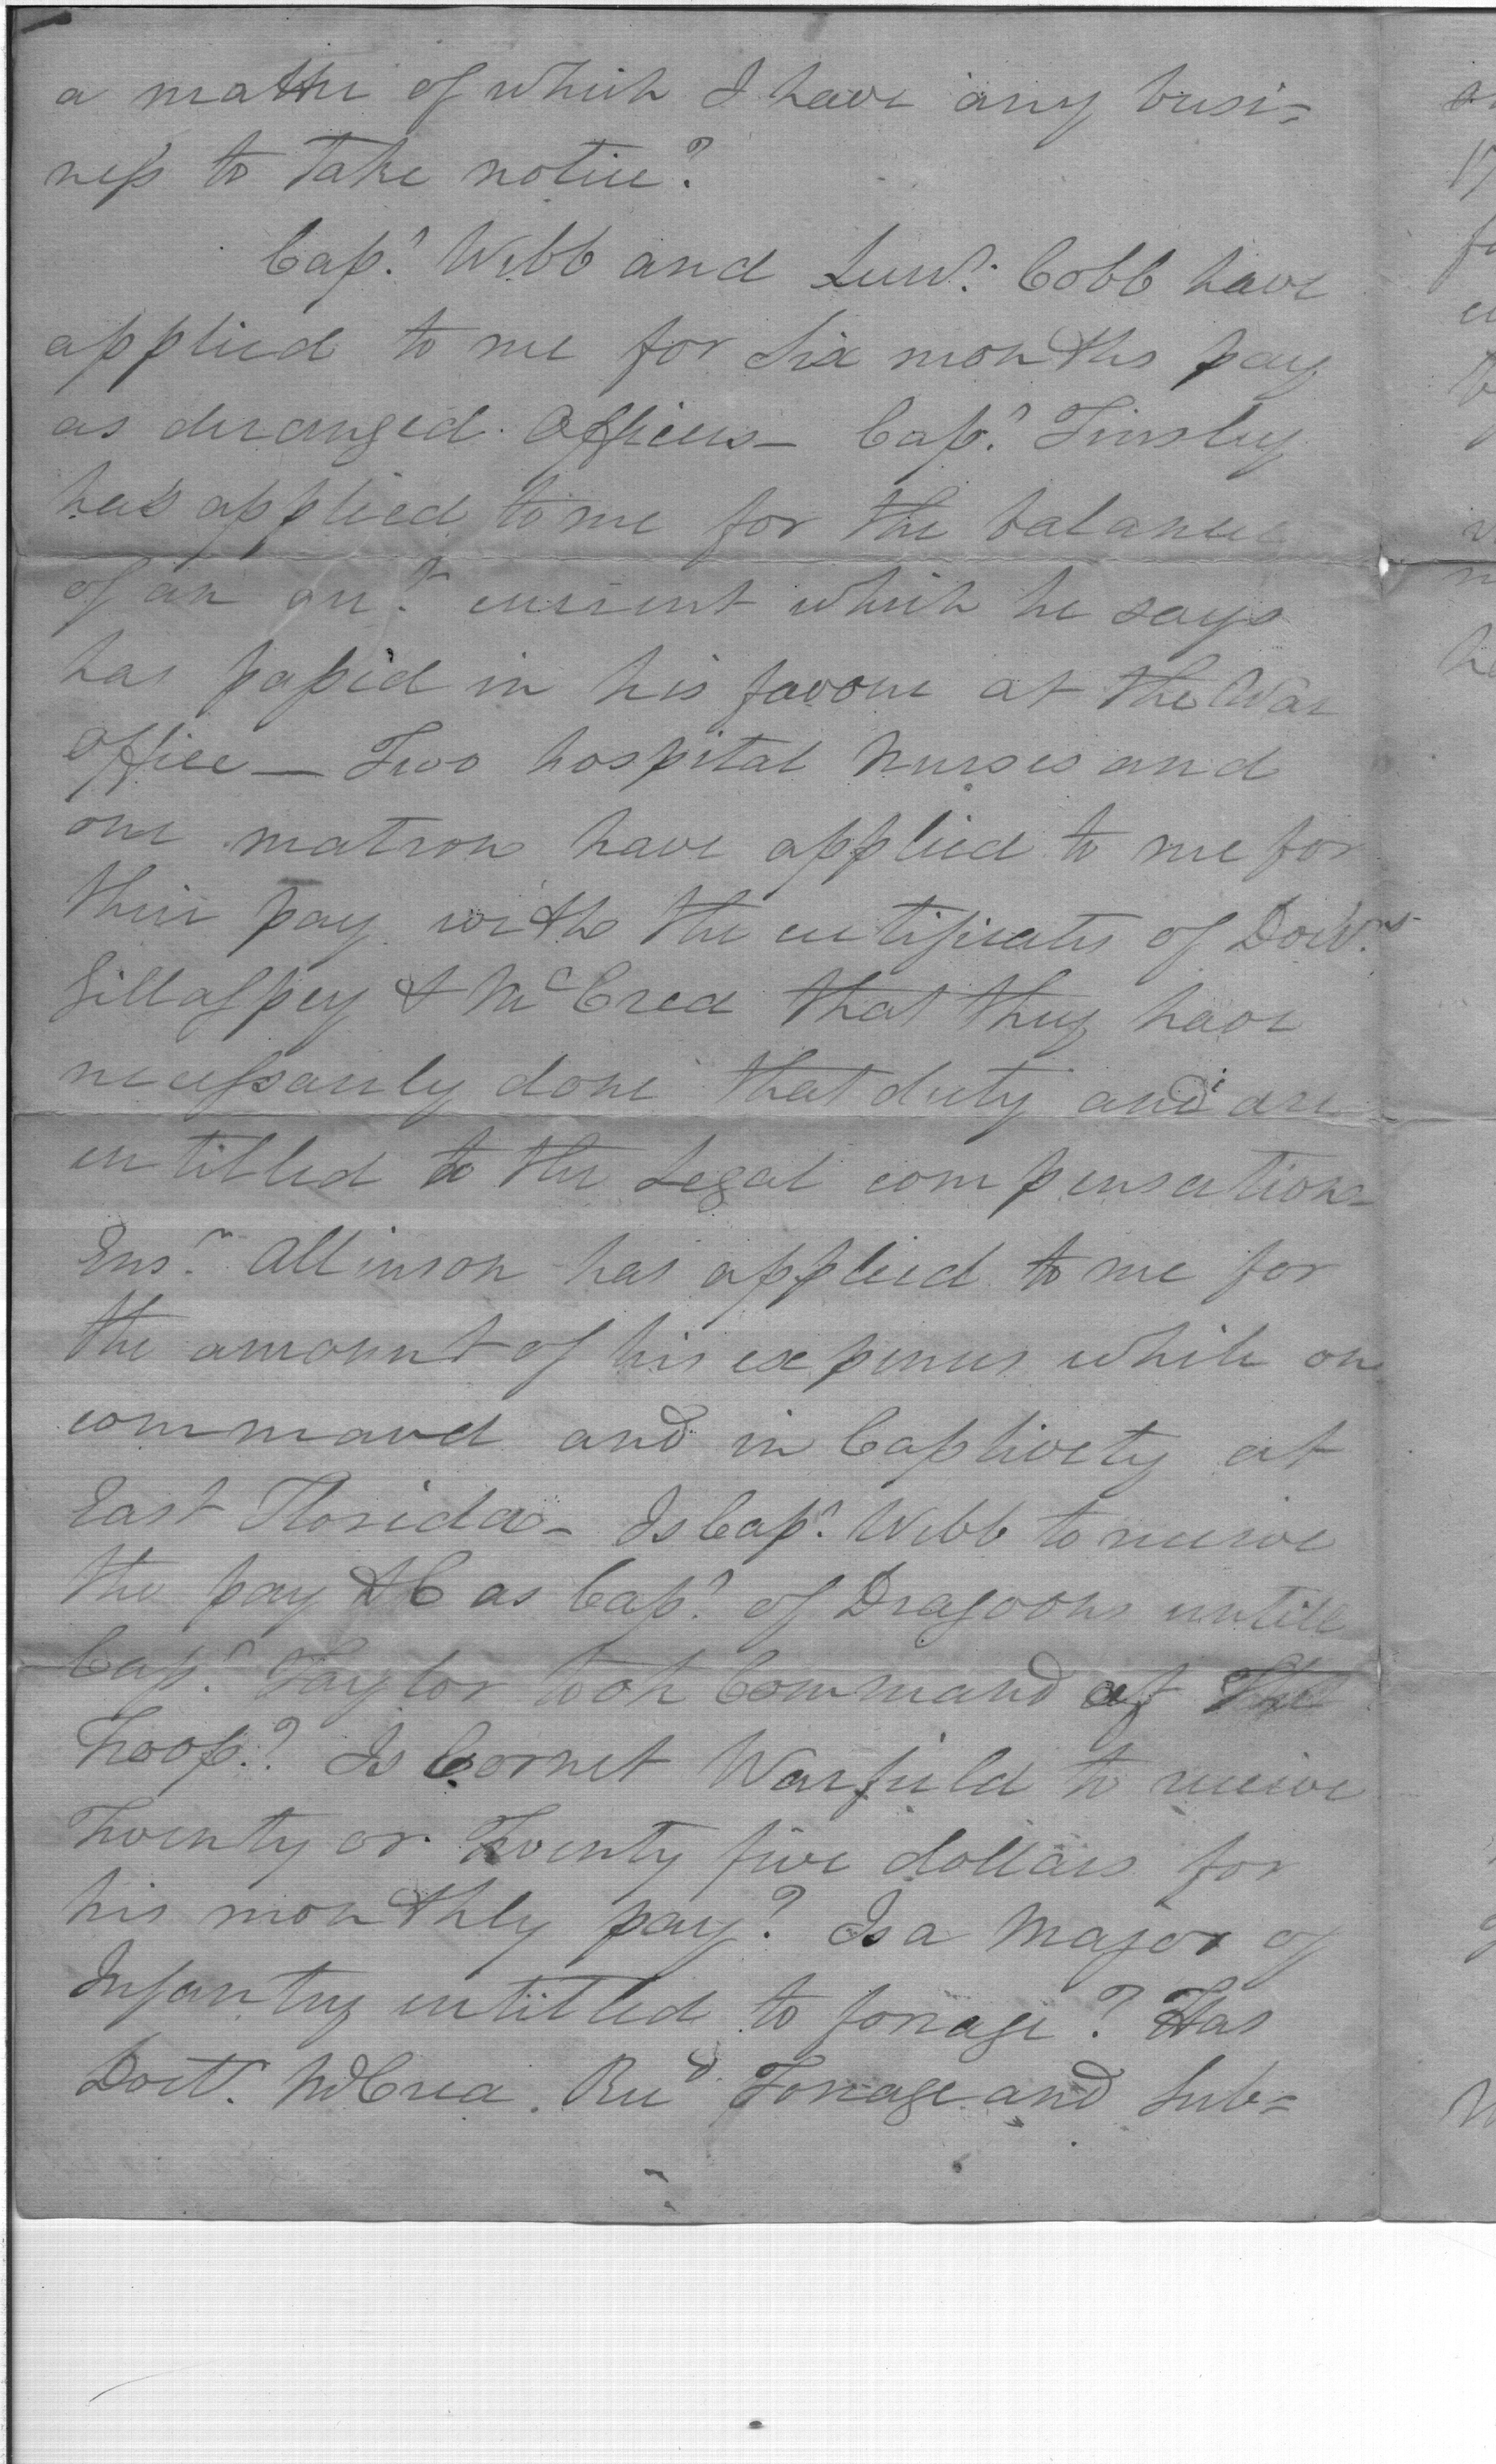 a matter of which I have any busi=
ness to take notice?
Capt. Webb and Lieut. Cobb have
applied to me for Six months pay
as deranged Officers— Capt. Tinsley
has applied to me for the balance
of an acct. current which he says
has passed in his favour at the War
Office— Two hospital Nurses and
one matron have applied to me for
their pay with the certificates of Doctrs.
Gillaspey & McCrea that they have
necessarily done that duty and are
entitled to the Legal compensation—
Ensn. Allinson has applied to me for
the amount of his expenses while on
command and in Captivety at
East Florida— Is Capt. Webb to receive
the pay &C as Capt. of Dragoons untill
Capt. Taylor took Command of the
Troop? Is Cornet Warfield to receive
Twenty or Twenty five dollars for
his monthly pay? Is a Major of
Infantry entitled to forage? Has
Doctr. McCrea Recd. Forrage and Sub=